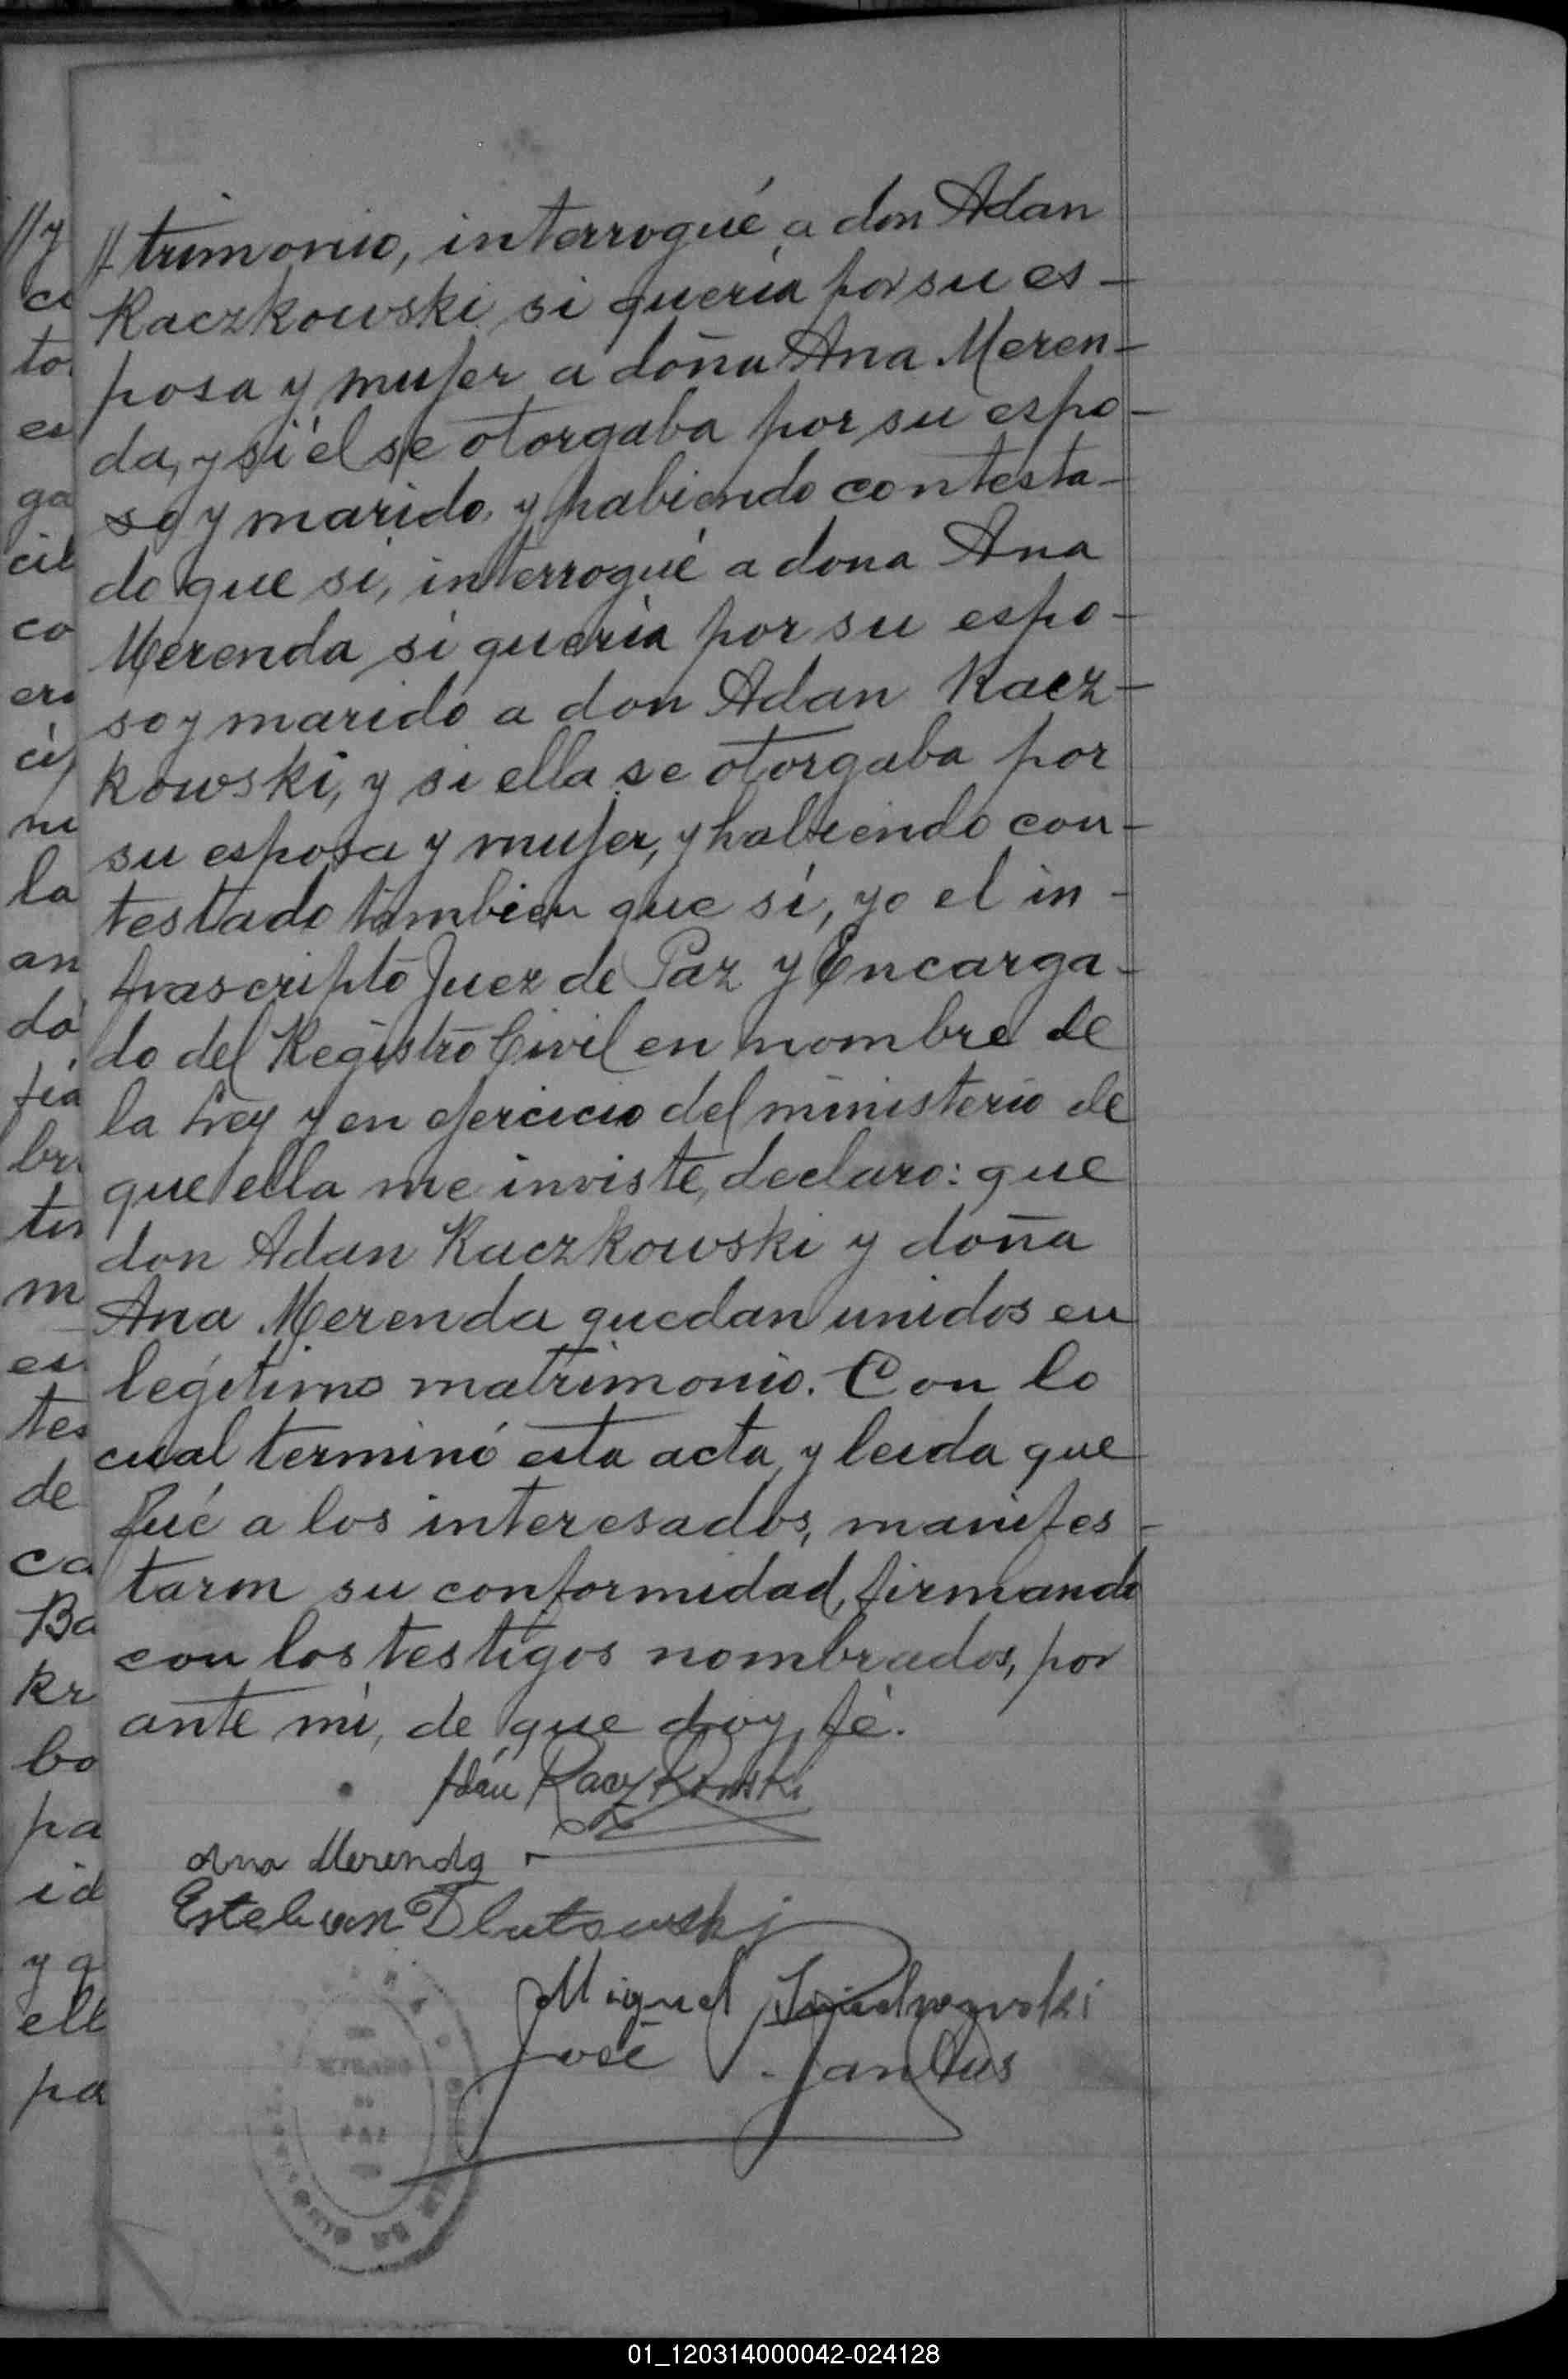 // trimonio, interrogué a don Adan
Kaczkowski si quería por su es-
posa y mujer a doña Ana Meren-
da, y si él se otorgaba por su espo-
so y marido, y habiendo contesta-
do que si, interrogué a dona Ana
Merenda si quería por su espo-
so y marido a don Adan Kacz-
kowski, y si ella se otorgaba por
su esposa y mujer, y habiendo con-
testado tambien que sí, yo el in-
frascripto Juez de Paz y Encarga-
do del Registro Civil en nombre de
la Ley y en ejercicio del ministerio de
que ella me inviste, declaro: que
don Adan Kaczkowski y doña
Ana Merenda quedan unidos en
legítimo matrimonio. Con lo
cual terminó esta acta, y leida que
fué a los interesados, manifes-
taron su conformidad, firmando
con los testigos nombrados, por
ante mí, de que doy fé.
Adán Kaczkowski
Ana Merenda
Esteban
Miguel
José
01_120314000042-024128